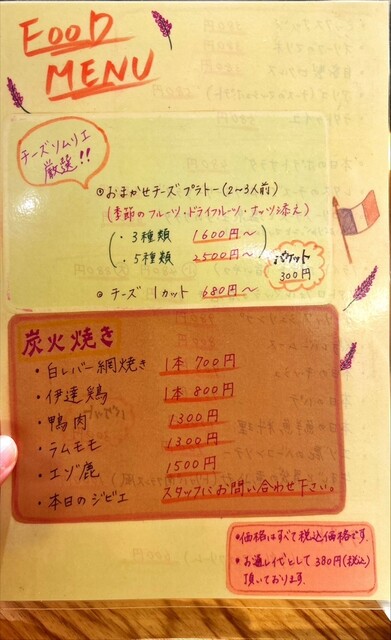 FOOD
MENU
チーズソムリエ
厳選!!
おまかせチーズプラトー(2〜3人前)
(季節のフルーツ・ドライフルーツ・ナッツ添え)
・3種類 1600円〜
・5種類 2500円〜
バケット
300円
チーズ 1カット 680円〜
炭火焼き
・白レバー網焼き 1本 700円
・伊達鶏 1本 800円
・鴨肉 1300円
・ラムモモ 1300円
・エゾ鹿 1500円
・本日のジビエ スタッフにお問い合わせ下さい。
・価格はすべて税込価格です。
・お通し代として380円(税込)
頂いております。